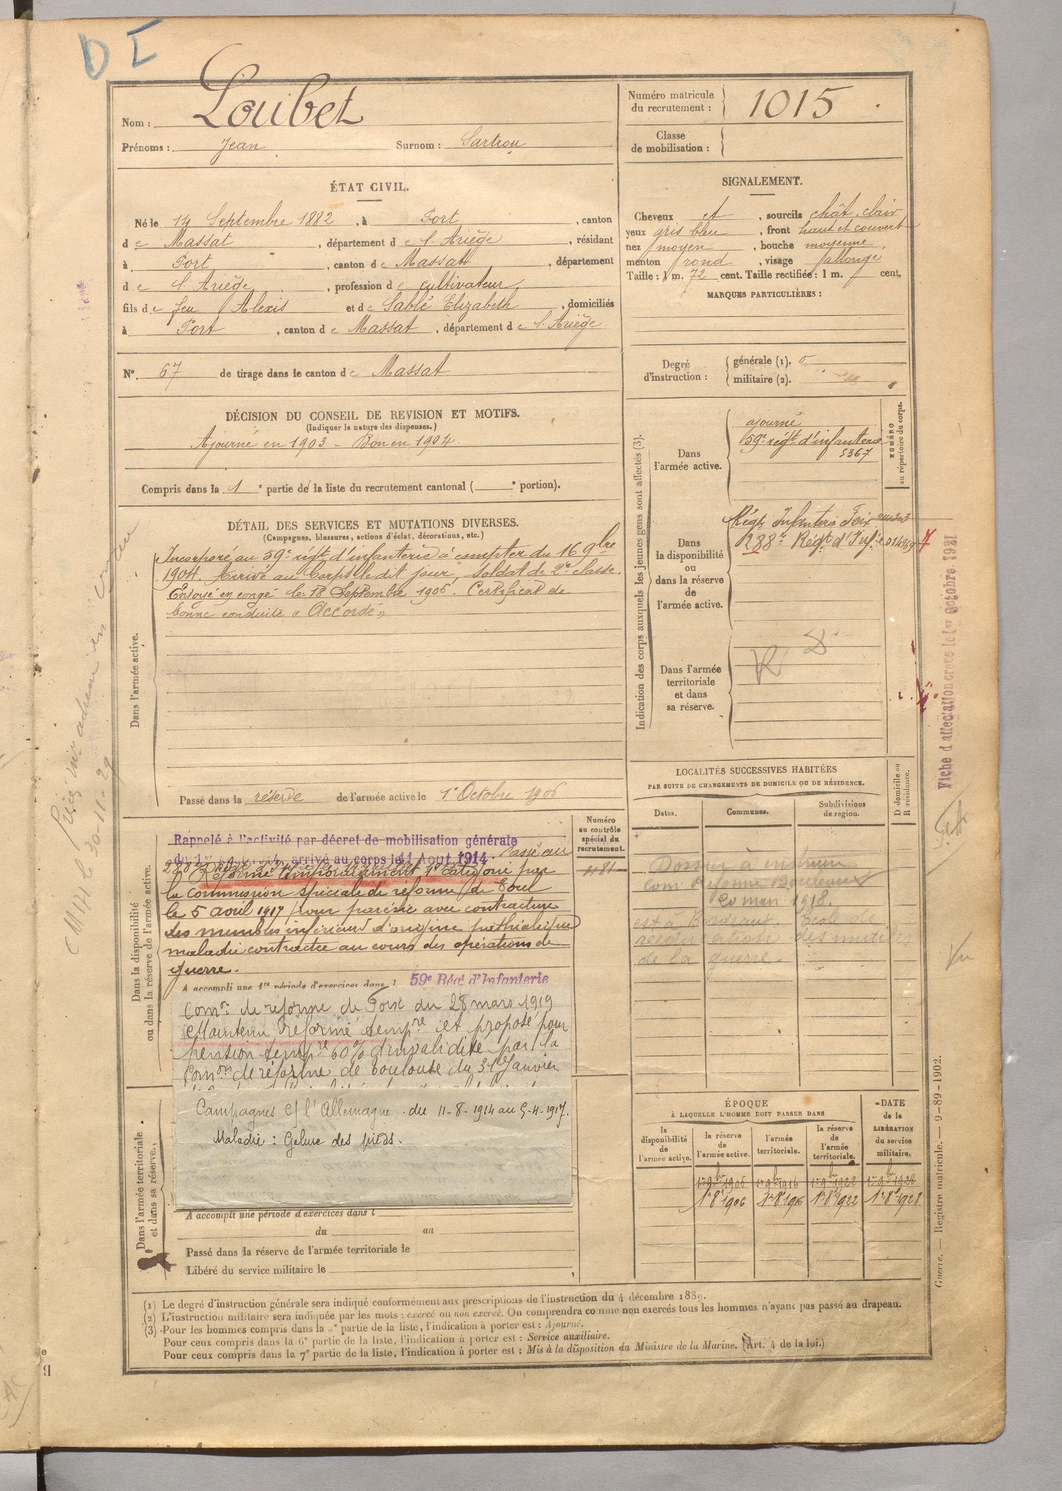 D I
Nom : Loubet
Prénoms : Jean Surnom : Sartrou
Numéro matricule du recrutement : 1015
Classe de mobilisation :
ÉTAT CIVIL.
Né le 14 Septembre 1882, à Port, canton
de Massat, département de l'Ariège, résidant
à Port, canton de Massat, département
de l'Ariège, profession de cultivateur,
fils de feu Alexis et de Sablé Elizabeth, domiciliés
à Port, canton de Massat, département de l'Ariège.
N° 67 de tirage dans le canton de Massat
SIGNALEMENT.
Cheveux et, sourcils chât. clair
yeux gris bleu, front haut et couvert
nez moyen, bouche moyenne,
menton rond, visage allongé
Taille : 1 m. 72 cent. Taille rectifiée : 1 m. cent.
MARQUES PARTICULIÈRES :
Degré d'instruction : générale (1).
militaire (2).
DÉCISION DU CONSEIL DE REVISION ET MOTIFS.
(Indiquer la nature des dispenses.)
Ajourné en 1903 – Bon en 1904.
Compris dans la 1e partie de la liste du recrutement cantonal ( e portion).
DÉTAIL DES SERVICES ET MUTATIONS DIVERSES.
(Campagnes, blessures, actions d'éclat, décorations, etc.)
Dans l'armée active.
Incorporé au 59e régt d'infanterie à compter du 16 9bre
1904. Arrivé au Corps le dit jour, soldat de 2e classe.
Envoyé en congé le 18 Septembre 1906. Certificat de
bonne conduite « Accordé »
Passé dans la réserve de l'armée active le 1er Octobre 1906
Indication des corps auxquels les jeunes gens sont affectés (3).
NUMÉRO au répertoire du corps.
Dans l'armée active.
ajourné
59e régt d'infanterie
5367
Dans la disponibilité ou dans la réserve de l'armée active.
Régt Infanterie Foix
288e Régt d'Inf.
Dans l'armée territoriale et dans sa réserve.
Fiche d'affectation créée le 1er octobre 1921
LOCALITÉS SUCCESSIVES HABITÉES
PAR SUITE DE CHANGEMENTS DE DOMICILE OU DE RÉSIDENCE.
D domicile ou R résidence.
Dates.
Communes.
Subdivisions de région.
Dossier à
Com Réforme Bordeaux
20 mars 1918.
est à Bordeaux. École de
rééducation des mutilés
de la guerre.
Dans la disponibilité ou dans la réserve de l'armée active.
Numéro au contrôle spécial du recrutement.
Rappelé à l'activité par décret de mobilisation générale
du 1er arrivé au corps le 11 Août 1914. Passé au
Réformé temporairement 1e catégorie par
la Commission spéciale de réforme de Toul
le 5 avril 1917 pour parésie avec contracture
des membres inférieurs d'origine
maladie contractée au cours des opérations de
guerre.
A accompli une 1re période d'exercices dans l 59e Régt d'Infanterie
Comon de réforme de Foix du 28 mars 1919
Maintenu Réformé tempre et proposé pour
pension tempre 60% d'invalidité par la
Comon de réforme de Toulouse du 31 Janvier
Campagnes c/ l'Allemagne. du 11-8-1914 au 5-4-1917.
Maladie : Gelure des pieds.
Dans l'armée territoriale et dans sa réserve.
A accompli une période d'exercices dans l
du au
Passé dans la réserve de l'armée territoriale le
Libéré du service militaire le
ÉPOQUE
À LAQUELLE L'HOMME DOIT PASSER DANS
la disponibilité de l'armée active.
la réserve de l'armée active.
l'armée territoriale.
la réserve de l'armée territoriale.
DATE de la LIBÉRATION du service militaire.
1er 8bre 1906 1er 8bre 1916 1er 8bre 1922 1er 8bre 1928
Guerre. — Registre matricule. — 9-89-1902.
(1) Le degré d'instruction générale sera indiqué conformément aux prescriptions de l'instruction du 4 décembre 1889.
(2) L'instruction militaire sera indiquée par les mots : exercé ou non exercé. On comprendra comme non exercés tous les hommes n'ayant pas passé au drapeau.
(3) Pour les hommes compris dans la e partie de la liste, l'indication à porter est : Ajourné.
Pour ceux compris dans la 6e partie de la liste, l'indication à porter est : Service auxiliaire.
Pour ceux compris dans la 7e partie de la liste, l'indication à porter est : Mis à la disposition du Ministre de la Marine. (Art. 4 de la loi.)